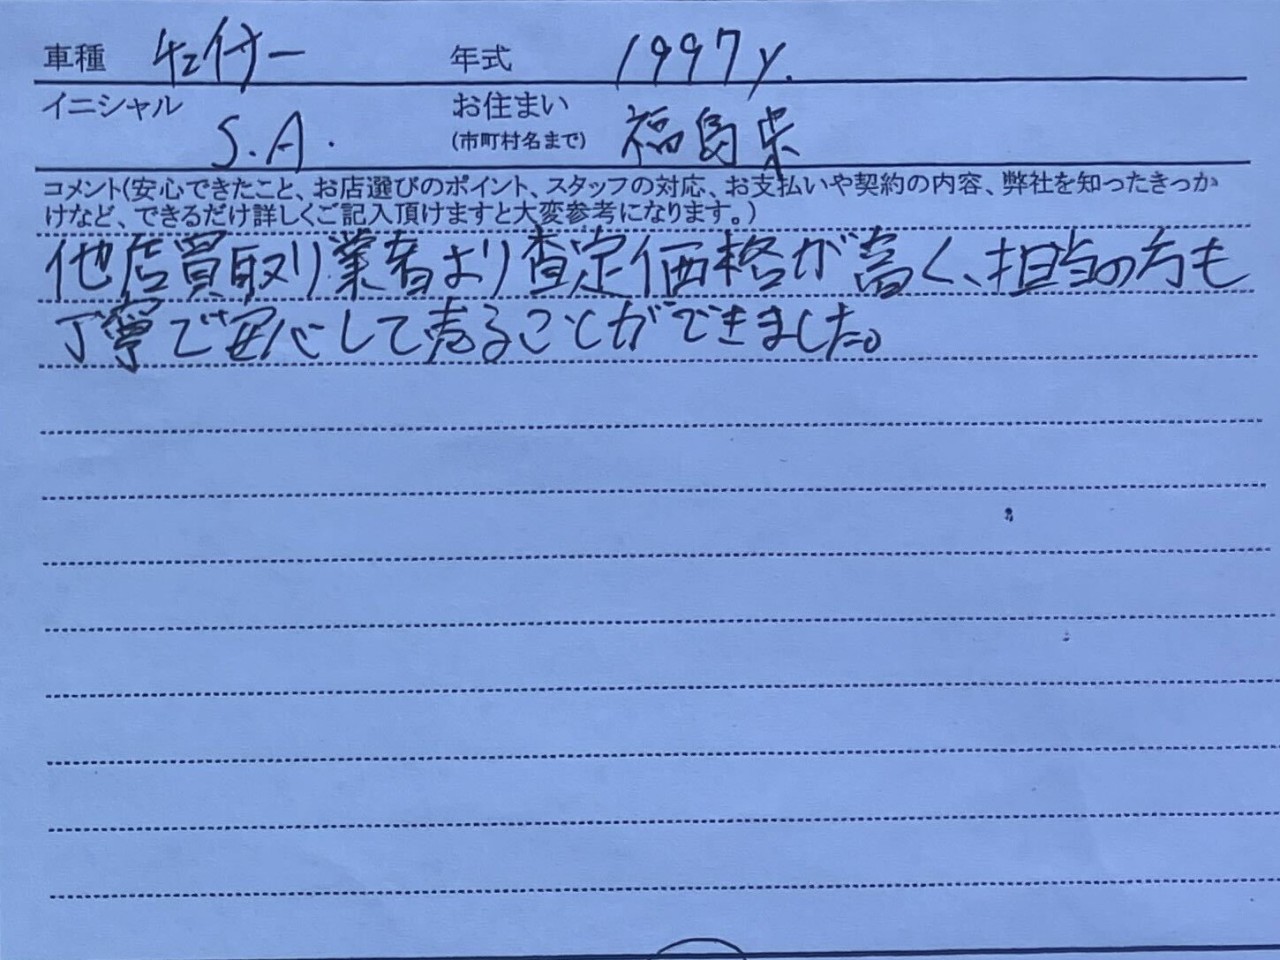 車種 チェイサー 年式 1997y.
イニシャル S.A. お住まい(市町村名まで) 福島県
コメント(安心できたこと、お店選びのポイント、スタッフの対応、お支払いや契約の内容、弊社を知ったきっか
けなど、できるだけ詳しくご記入頂けますと大変参考になります。)
他店買取り業者より査定価格が高く、担当の方も
丁寧で安心して売ることができました。